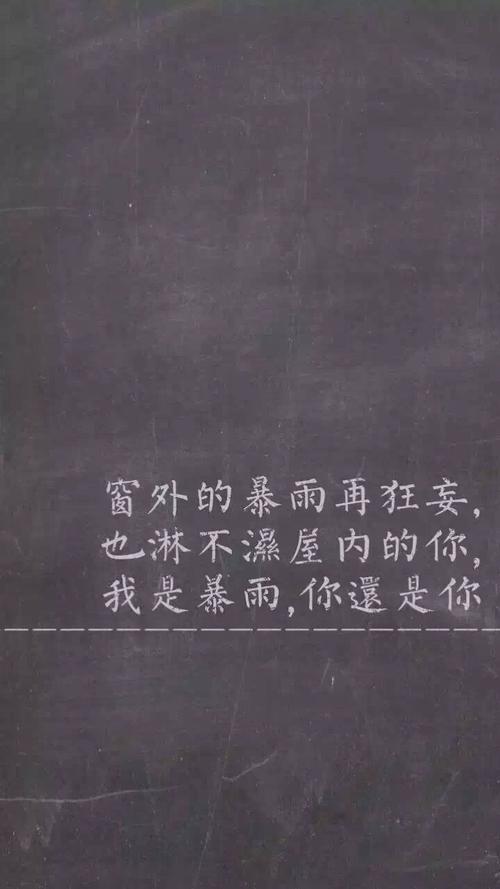 窗外的暴雨再狂妄,
也淋不濕屋内的你,
我是暴雨,你還是你